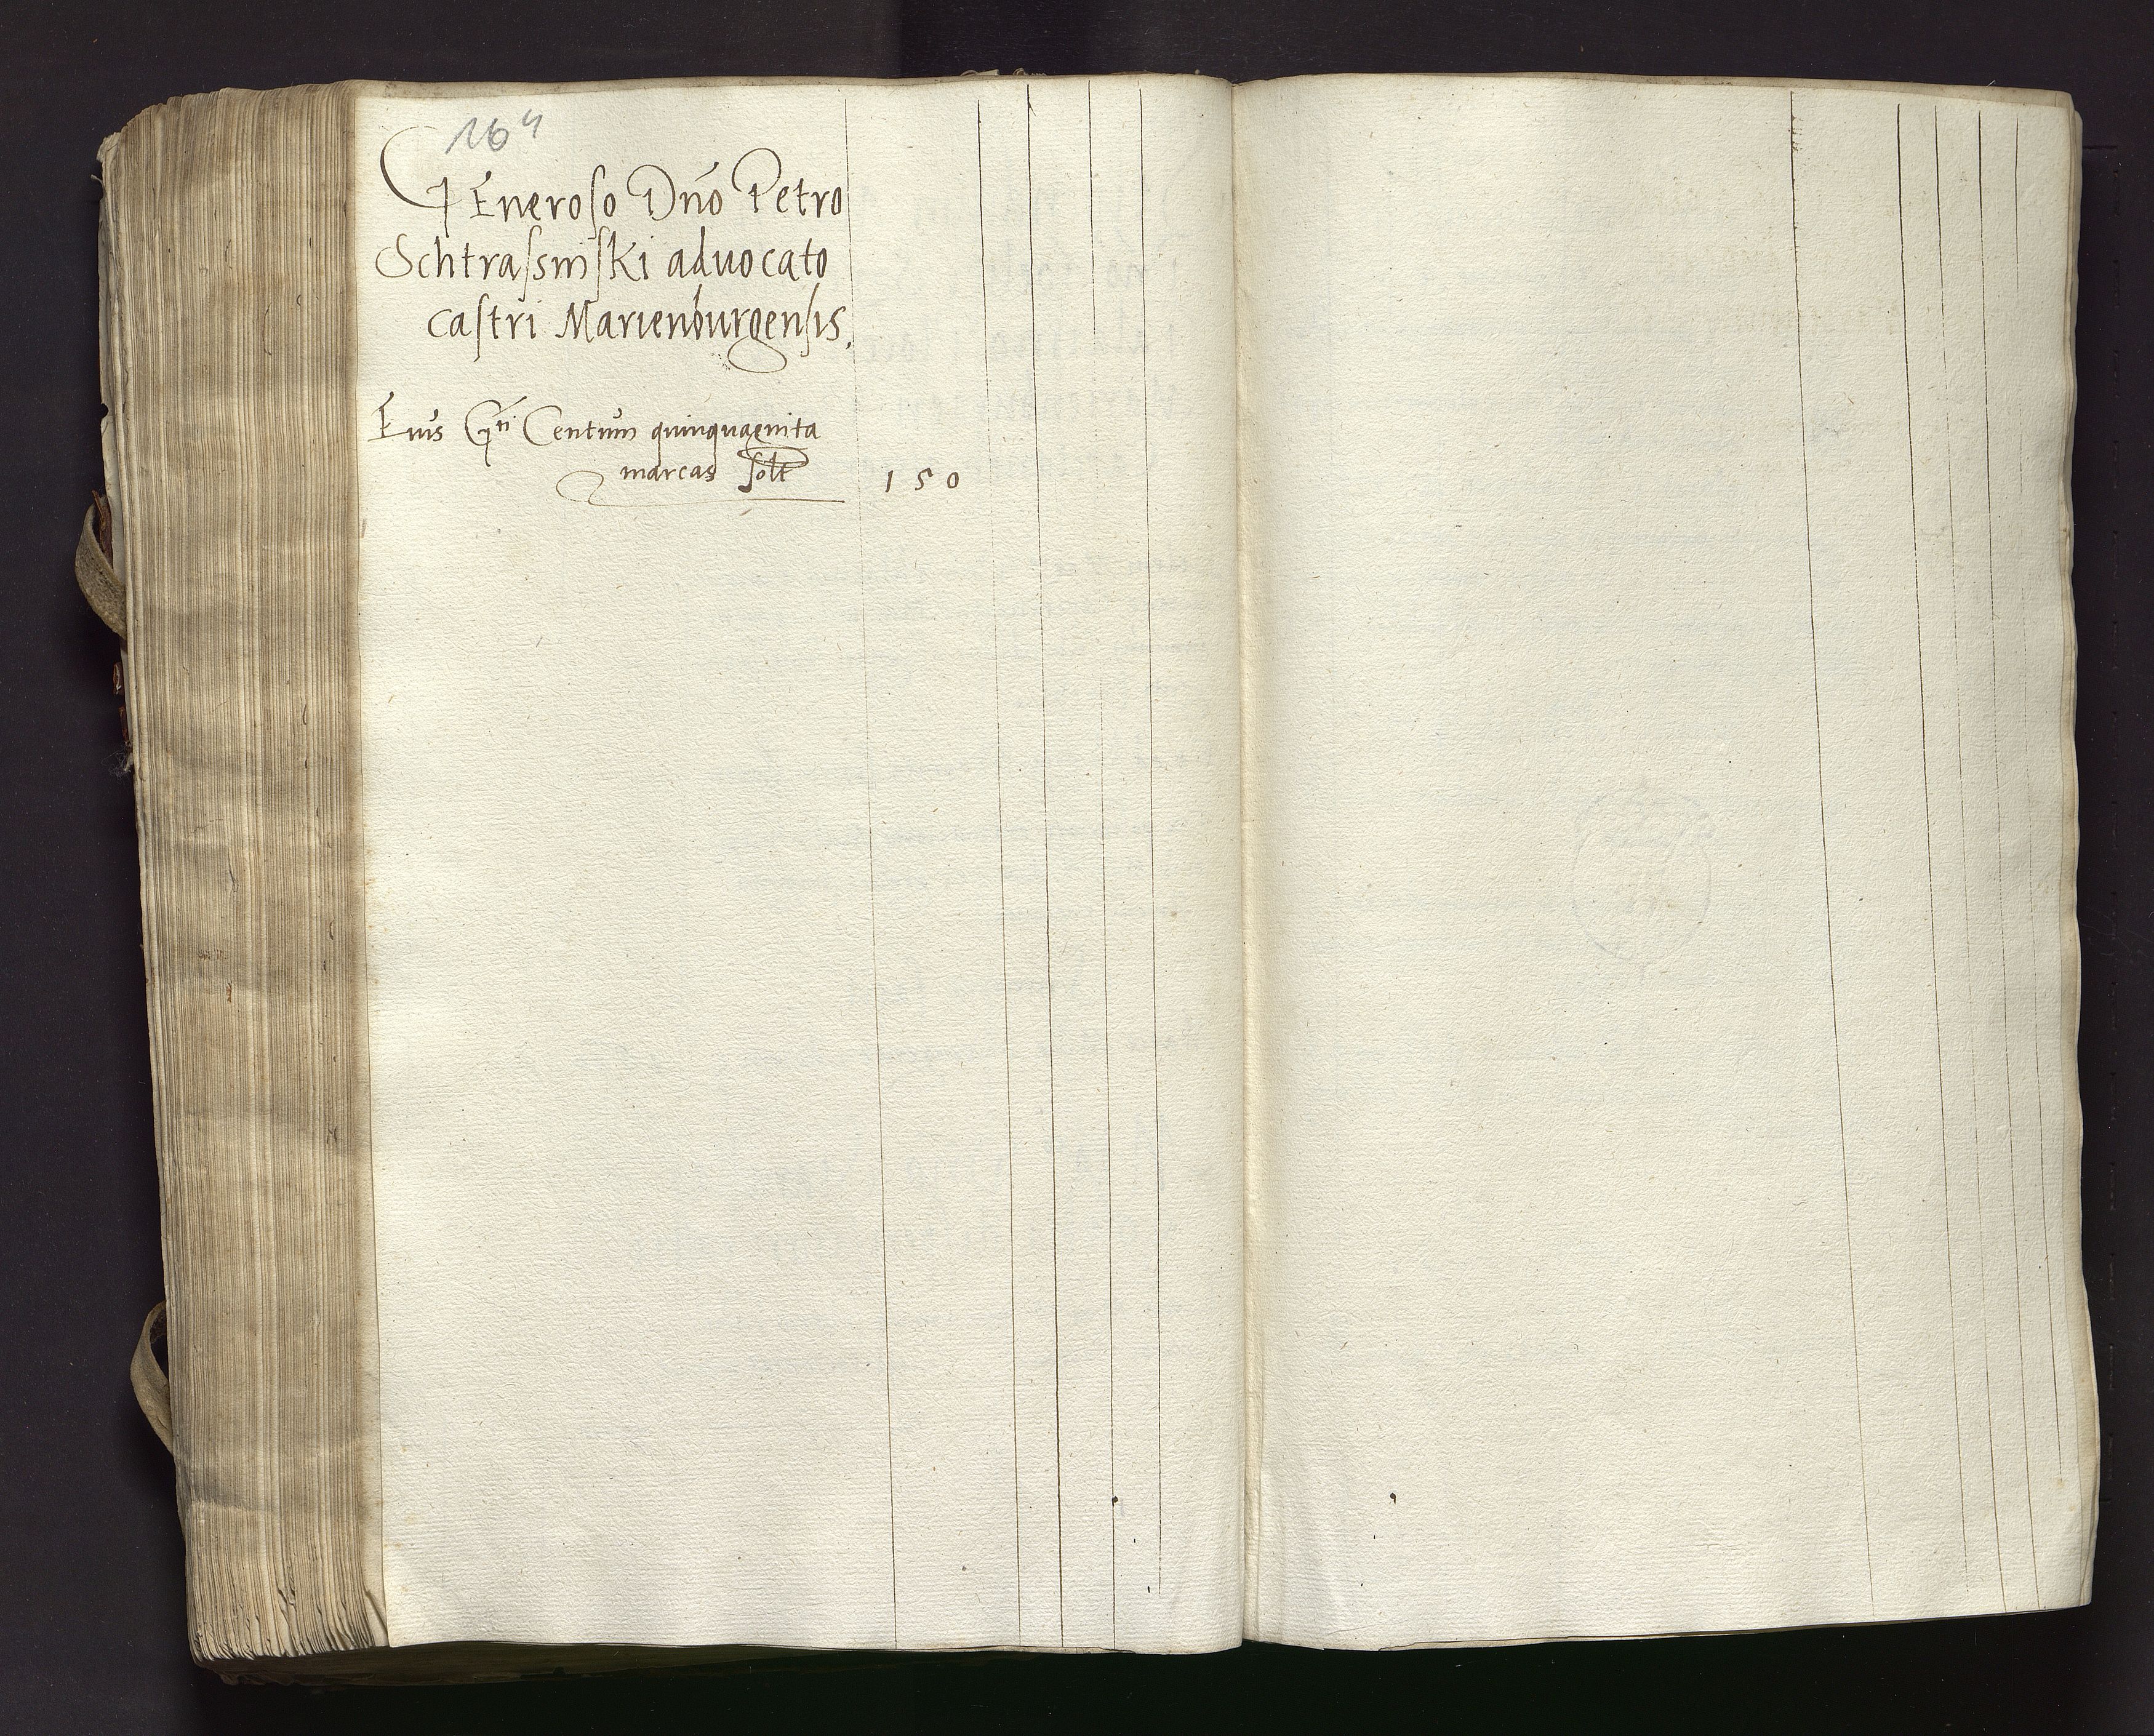 164
GEneroso Dno Petro
Schtrassinski aduocato
castri Marienburgensis.
Eius Gti Centum quinquagnita
marcas solt 150